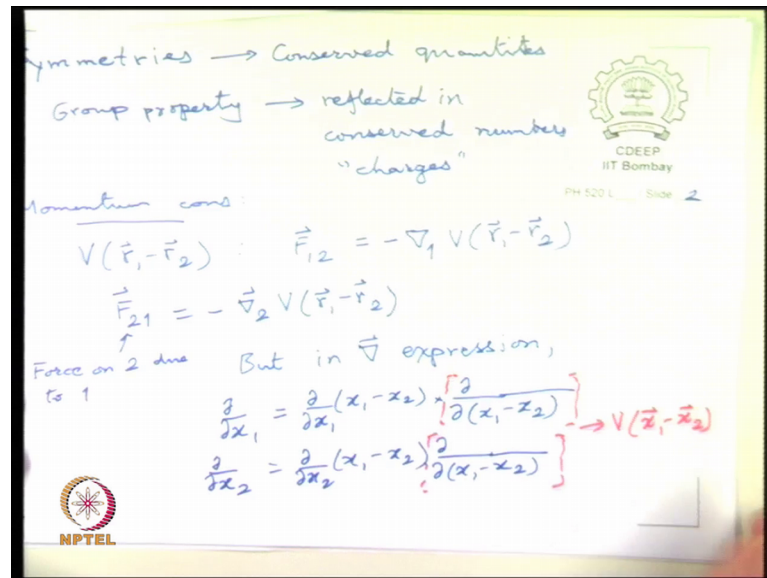 ymmetries → Conserved quantites
Group property → reflected in
conserved numbers
"charges"
CDEEP
IIT Bombay
PH 520 L Slide 2
Momentum cons:
V(r⃗₁-r⃗₂) : F⃗₁₂ = -∇₁ V(r⃗₁-r⃗₂)
F⃗₂₁ = -∇⃗₂ V(r⃗₁-r⃗₂)
↑
Force on 2 due
to 1
But in ∇⃗ expression,
∂/∂x₁ = ∂/∂x₁ (x₁-x₂) · [∂/∂(x₁-x₂)] → V(x⃗₁-x⃗₂)
∂/∂x₂ = ∂/∂x₂ (x₁-x₂) [∂/∂(x₁-x₂)]
NPTEL